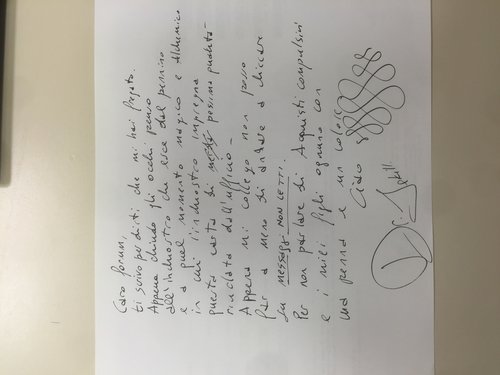 Caro forum,
ti scrivo per dirti che mi hai fregato.
Appena chiudo gli occhi penso
all'inchiostro che esce dal pennino
e a quel momento magico e Alchemico
in cui l'inchiostro impregna
questa carta di pessima qualità
riciclata dall'ufficio -
Appena mi collego non posso
far a meno di andare a cliccare
su MESSAGGI NON LETTI.
Per non parlare di Acquisti compulsivi
e i miei figli ognuno con
una penna e un colore
Ciao
Dr. Jekill